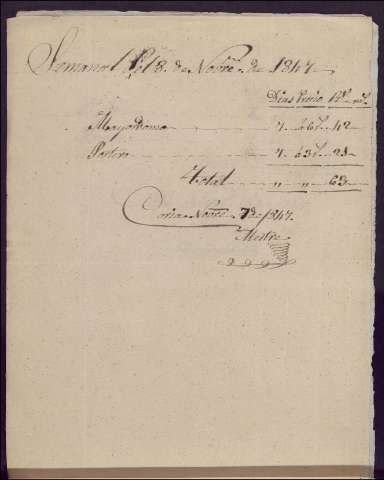 Semanal 8. de Novre. de 1847
Dias Precio Rs. ms.
Mayordomo 7. á 6r. 42
Portero 7. á 3r. 21
Total " " 63
Coria Novre. 7 de 1847.
Mestre